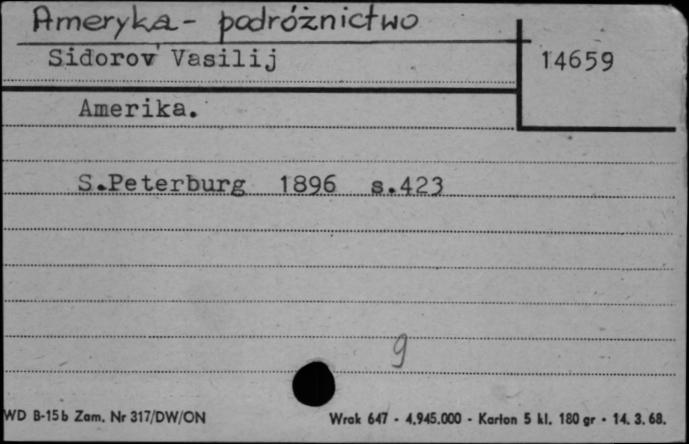 Ameryka - podróżnictwo
Sidorov Vasilij
14659
Amerika.
S.Peterburg 1896 s.423
9
WD B-15b Zam. Nr 317/DW/ON
Wrak 647 - 4.945.000 - Karton 5 kl. 180 gr - 14. 3. 68.